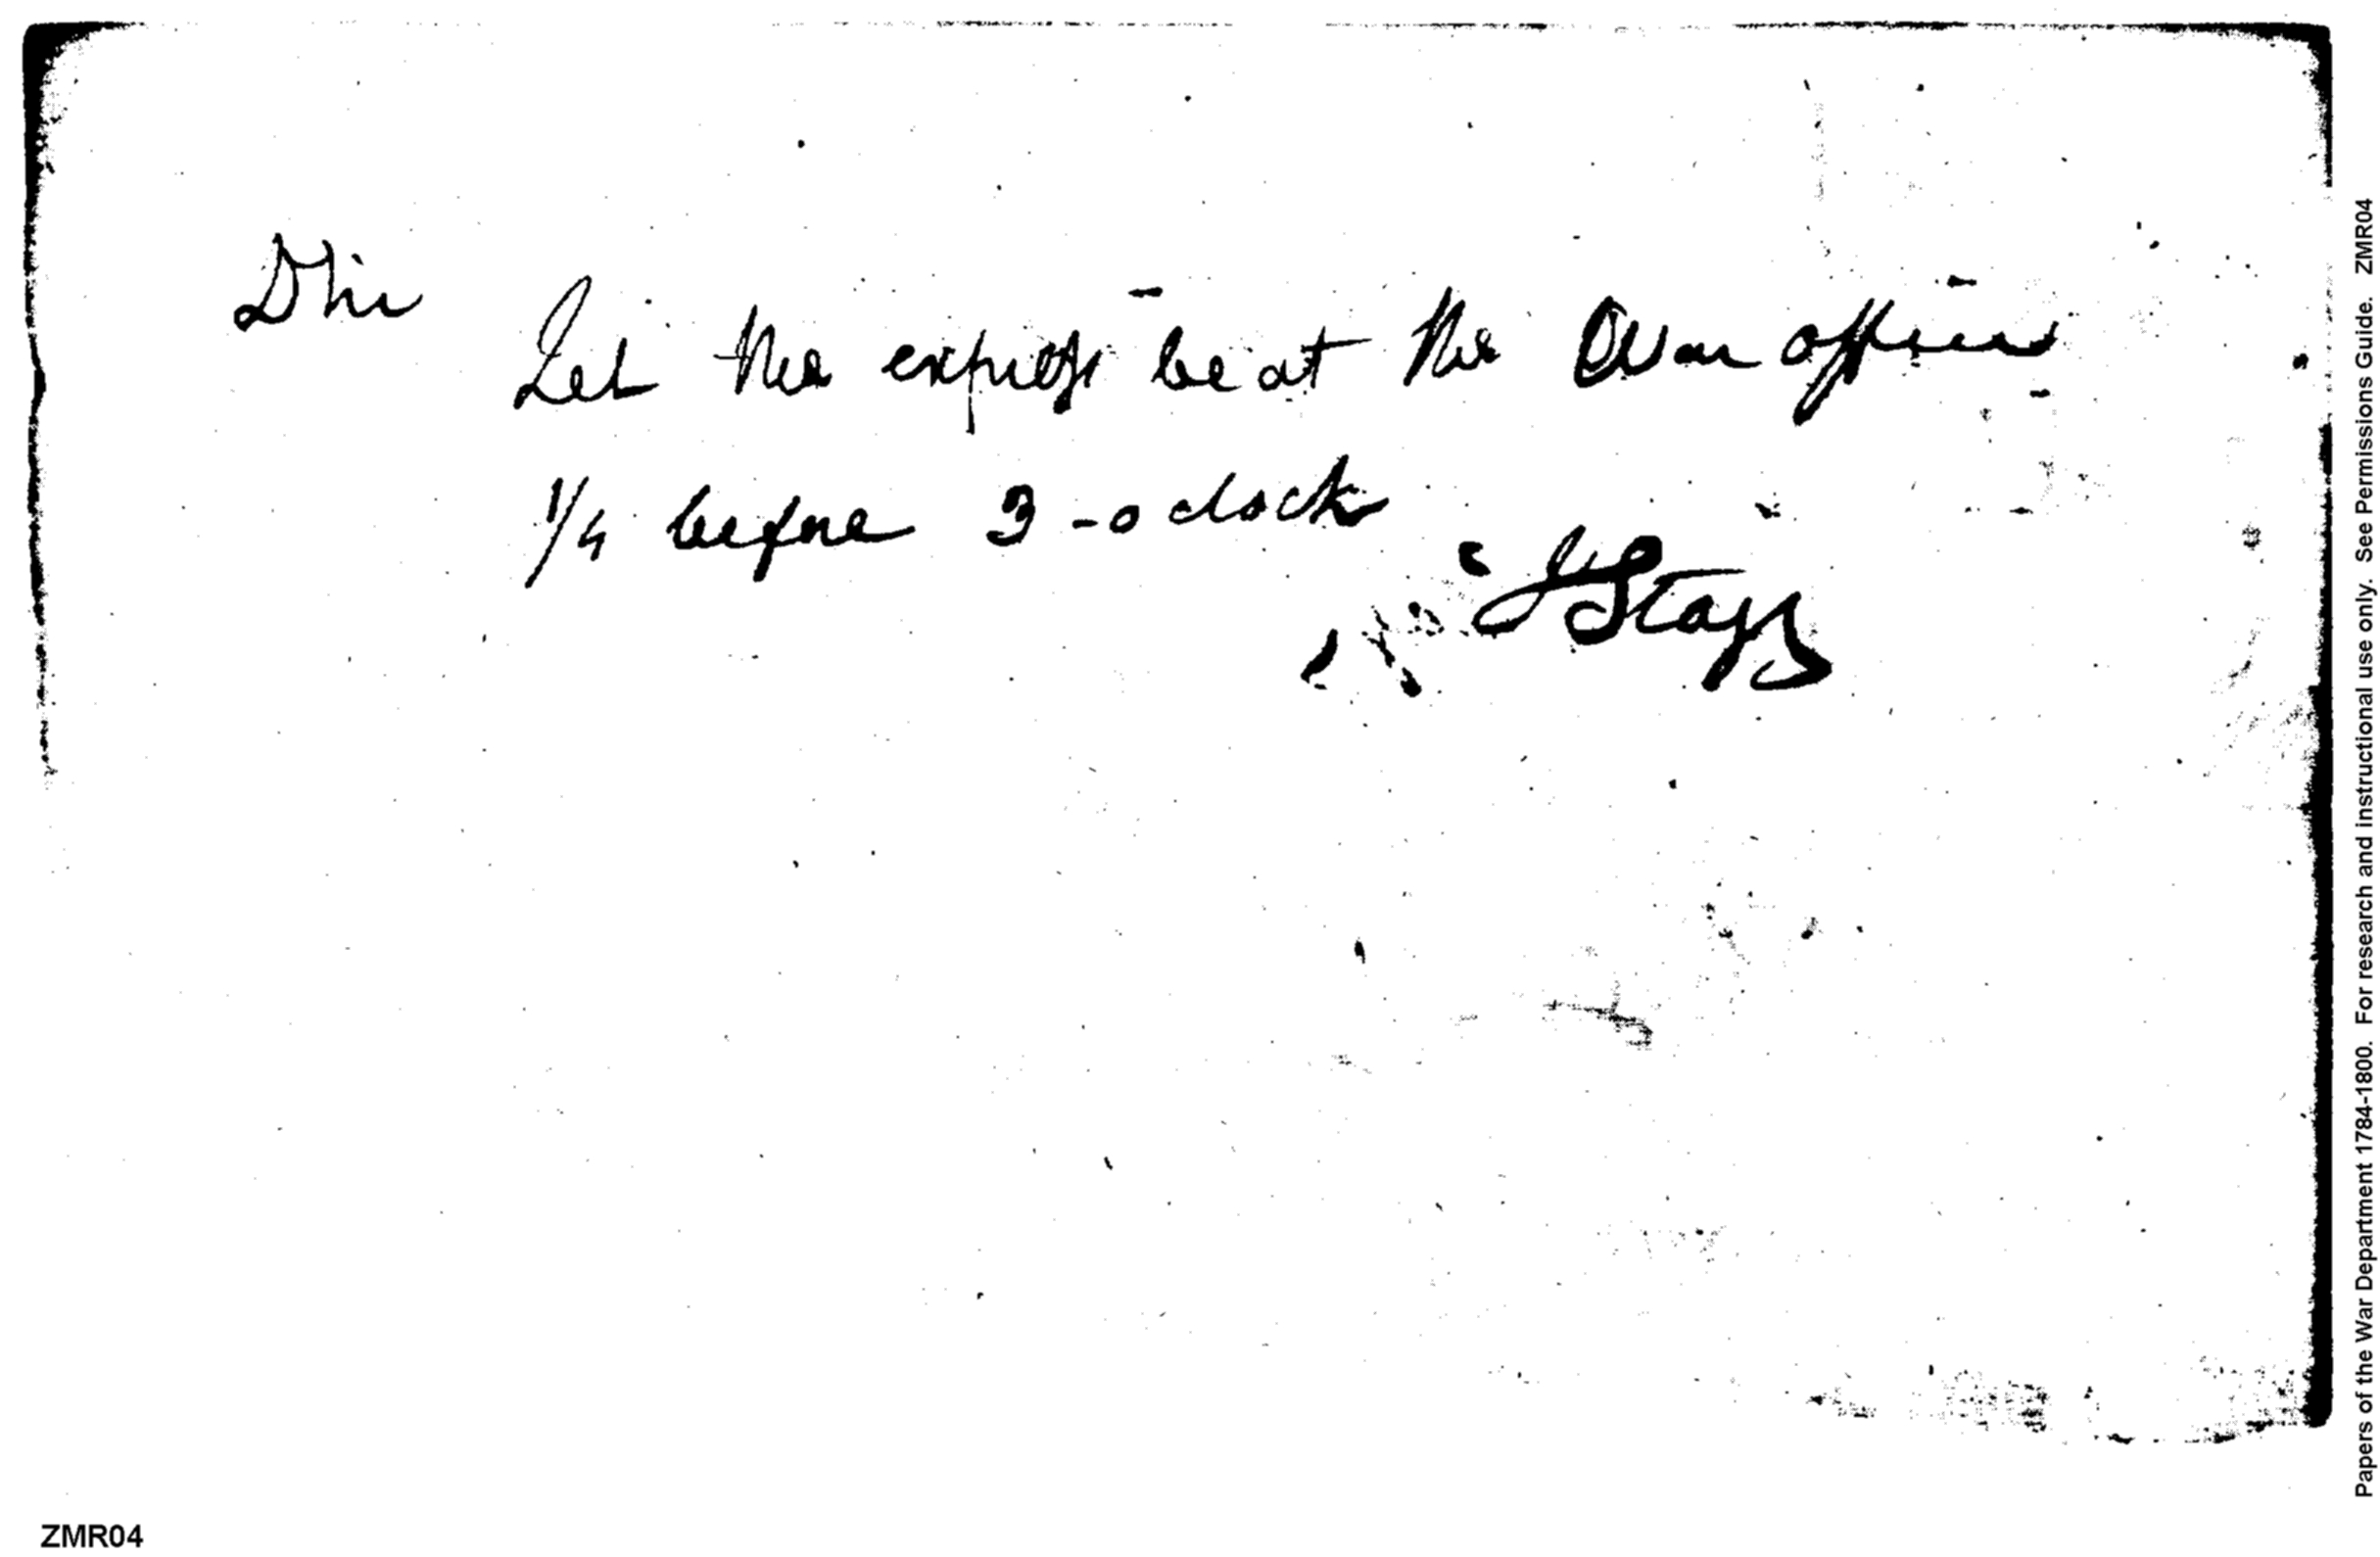 D Sir
Let the express be at the War office
1/4 before 3 - o clock
J Stagg
ZMR04
Papers of the War Department 1784-1800. For research and instructional use only. See Permissions Guide. ZMR04